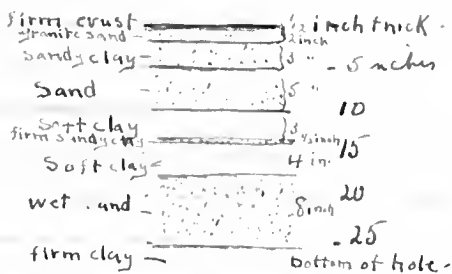 firm crust ½ inch thick.
granite sand 2 inch
sandy clay 3 "
- 5 inches
Sand 5 "
10
Soft clay 3
firm sandy clay ½ inch
15
Soft clay 4 in.
20
wet and 8 inch
25
firm clay bottom of hole.